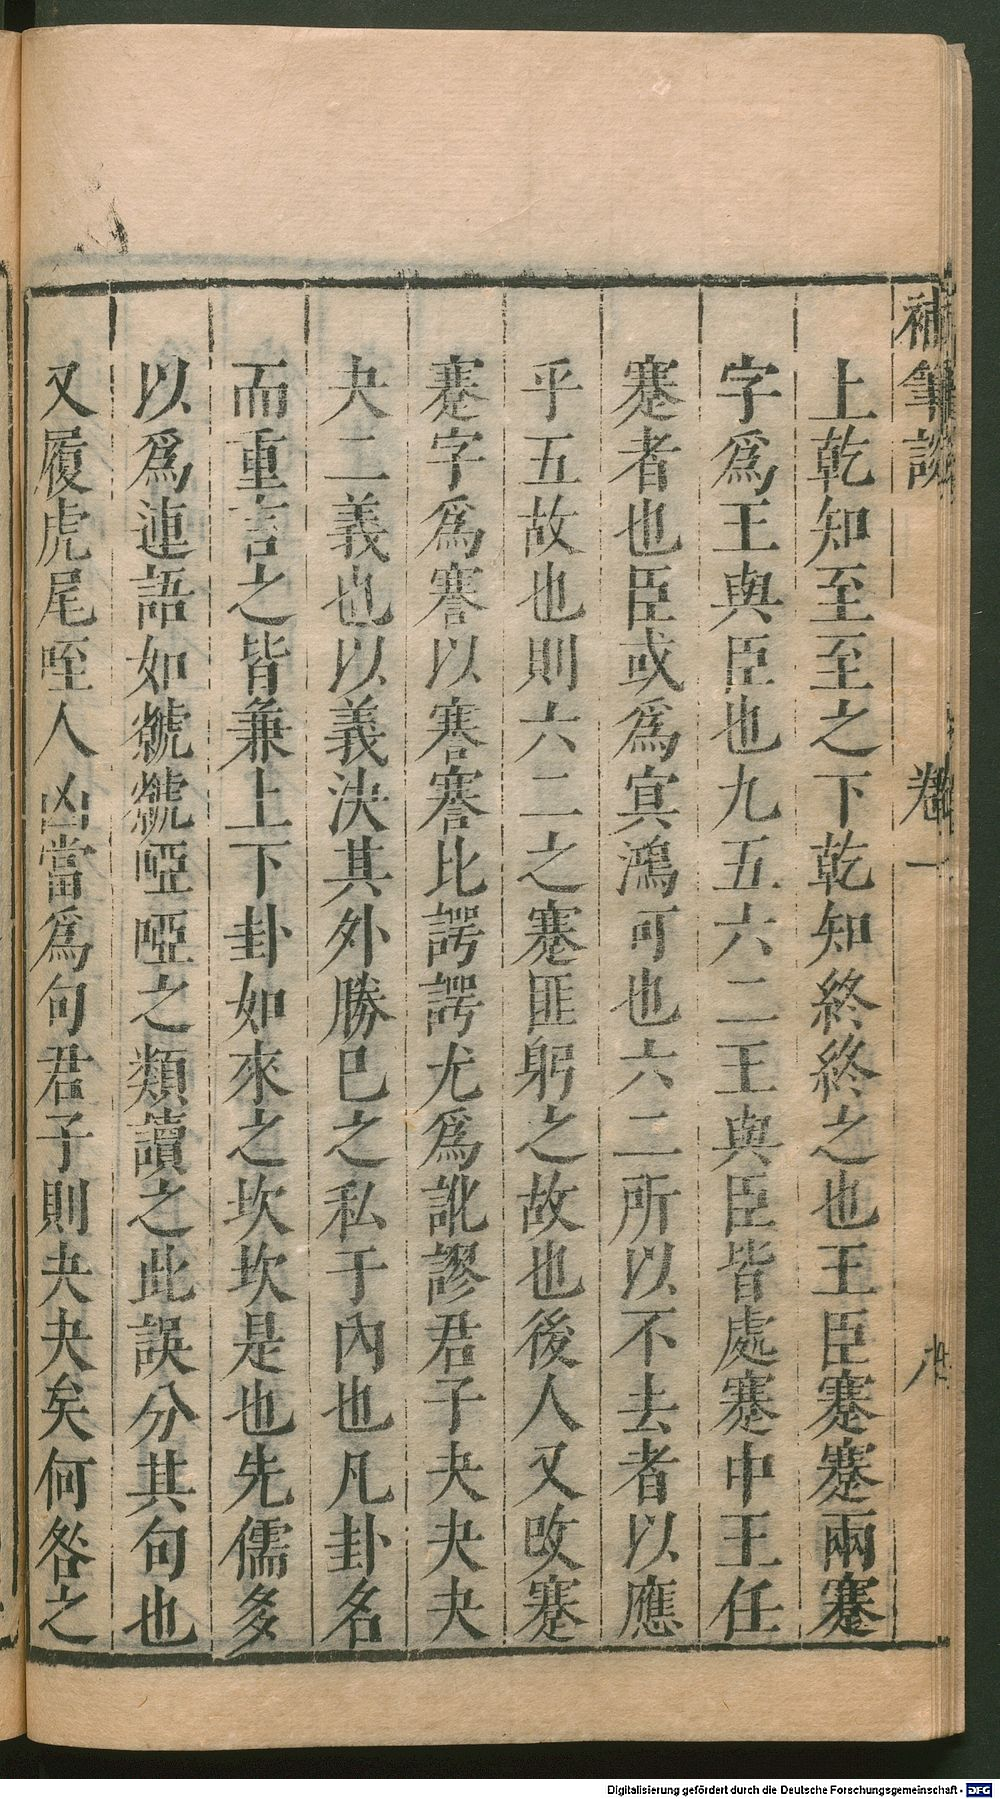 補筆談 卷一 八
上乾知至至之下乾知終終之也王臣蹇蹇兩蹇
字爲王與臣也九五六二王與臣皆處蹇中王任
蹇者也臣或爲㝠鴻可也六二所以不去者以應
乎五故也則六二之蹇匪躬之故也後人又改蹇
蹇字爲謇以謇謇比諤諤尤爲訛謬君子夬夬夬
夬二義也以義決其外勝已之私于內也凡卦名
而重言之皆兼上下卦如來之坎坎是也先儒多
以爲連語如虩虩啞啞之類讀之此誤分其句也
又履虎尾咥人凶當爲句君子則夬夬矣何咎之
Digitalisierung gefördert durch die Deutsche Forschungsgemeinschaft - DFG